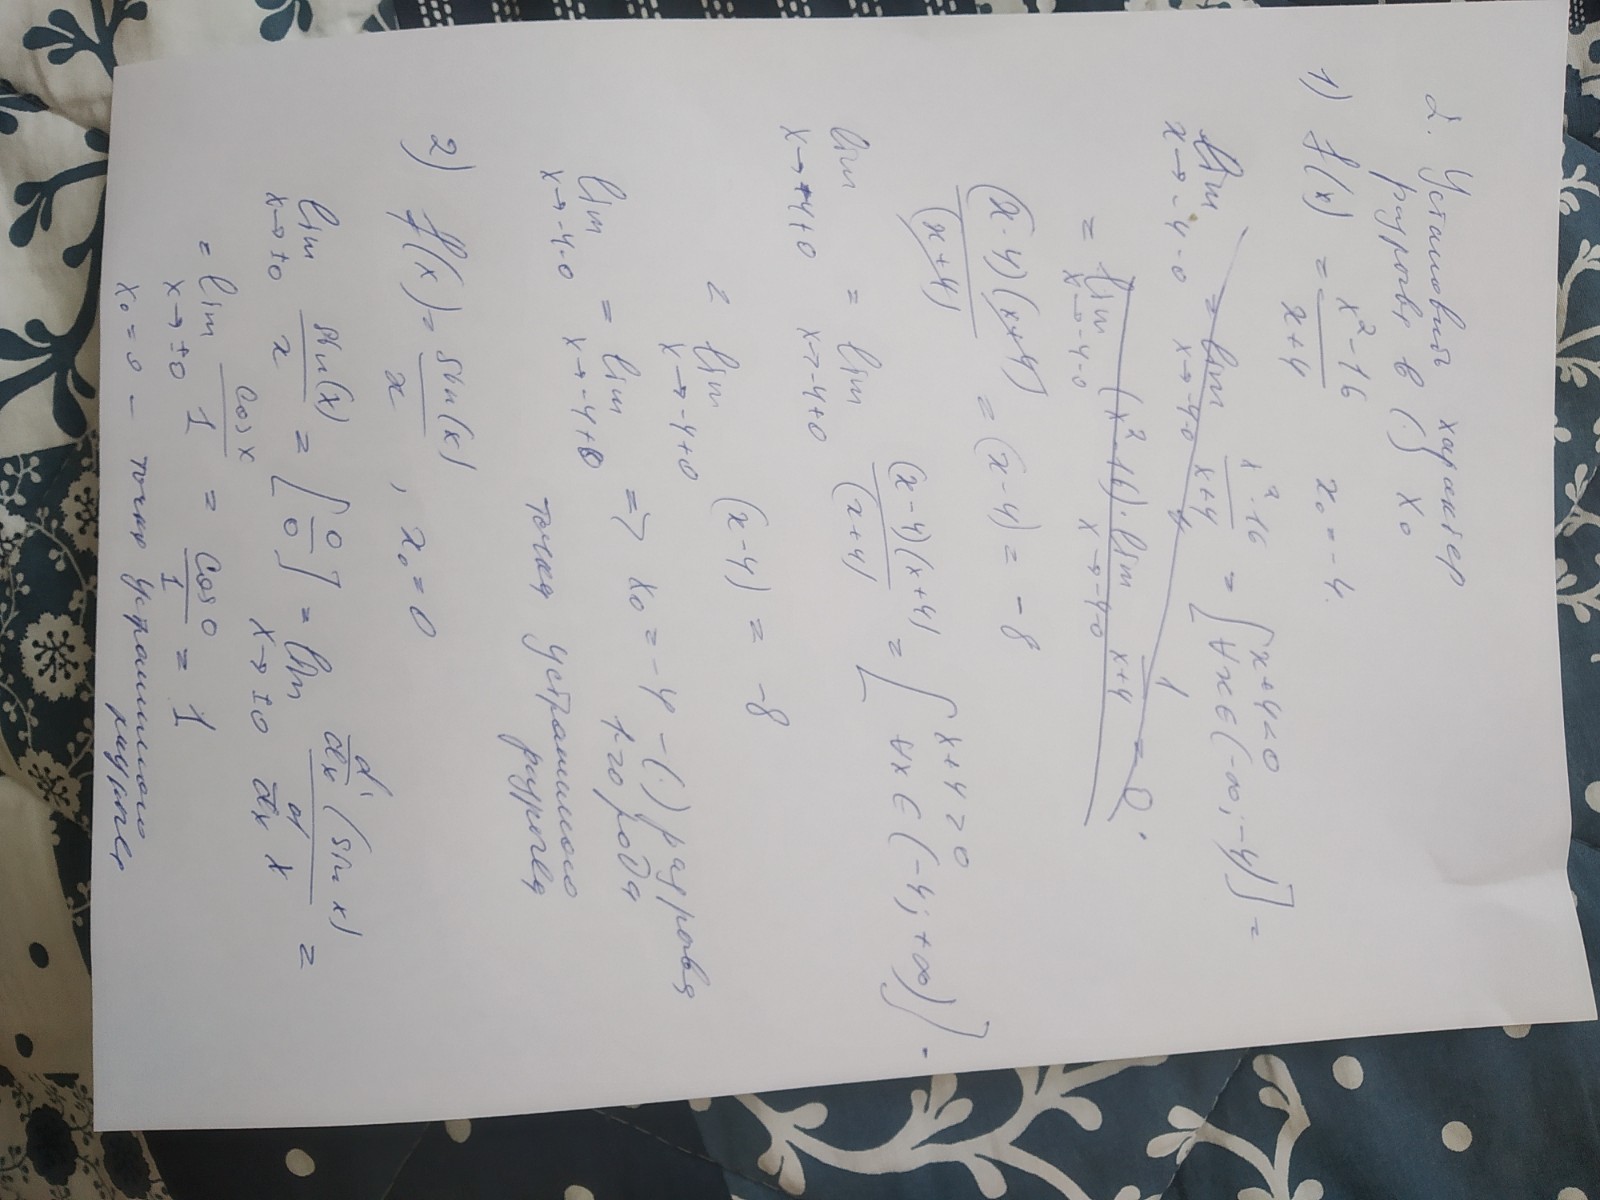 2. Установить характер
разрыва в (·) x₀
1) f(x) = (x²-16)/(x+4) x₀ = -4.
lim x→-4-0 = lim x→-4-0 (x²-16)/(x+4) = [x+4<0 ∀x∈(-∞;-4)] =
= lim x→-4-0 (x²-16)·lim x→-4-0 1/(x+4) = 0.
((x-4)(x+4))/(x+4) = (x-4) = -8
lim x→-4+0 = lim x→-4+0 ((x-4)(x+4))/(x+4) = [x+4>0 ∀x∈(-4;+∞)] =
= lim x→-4+0 (x-4) = -8
lim x→-4-0 = lim x→-4+0 => x₀ = -4 - (·) разрыва
1-го рода
точка устранимого
разрыва
2) f(x) = sin(x)/x, x₀ = 0
lim x→±0 sin(x)/x = [0/0] = lim x→±0 (d/dx (sin x))/(d/dx x) =
= lim x→±0 cos x/1 = cos 0/1 = 1
x₀ = 0 - точка устранимого
разрыва